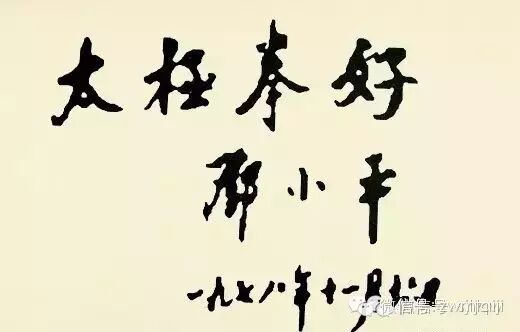 太极拳好
邓小平
一九七八年十一月
微信号: